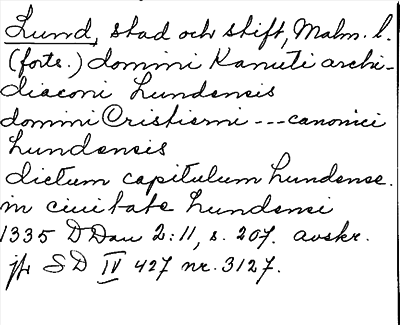 Lund, stad och stift, Malm. l.
(forts.) domini Kanuti archi-
diaconi Lundensis
domini Cristierni --- canonici
Lundensis
dictum capitulum Lundense.
in ciuitate Lundensi
1335 DDan 2:11, s. 207. avskr.
jfr SD IV 427 nr. 3127.